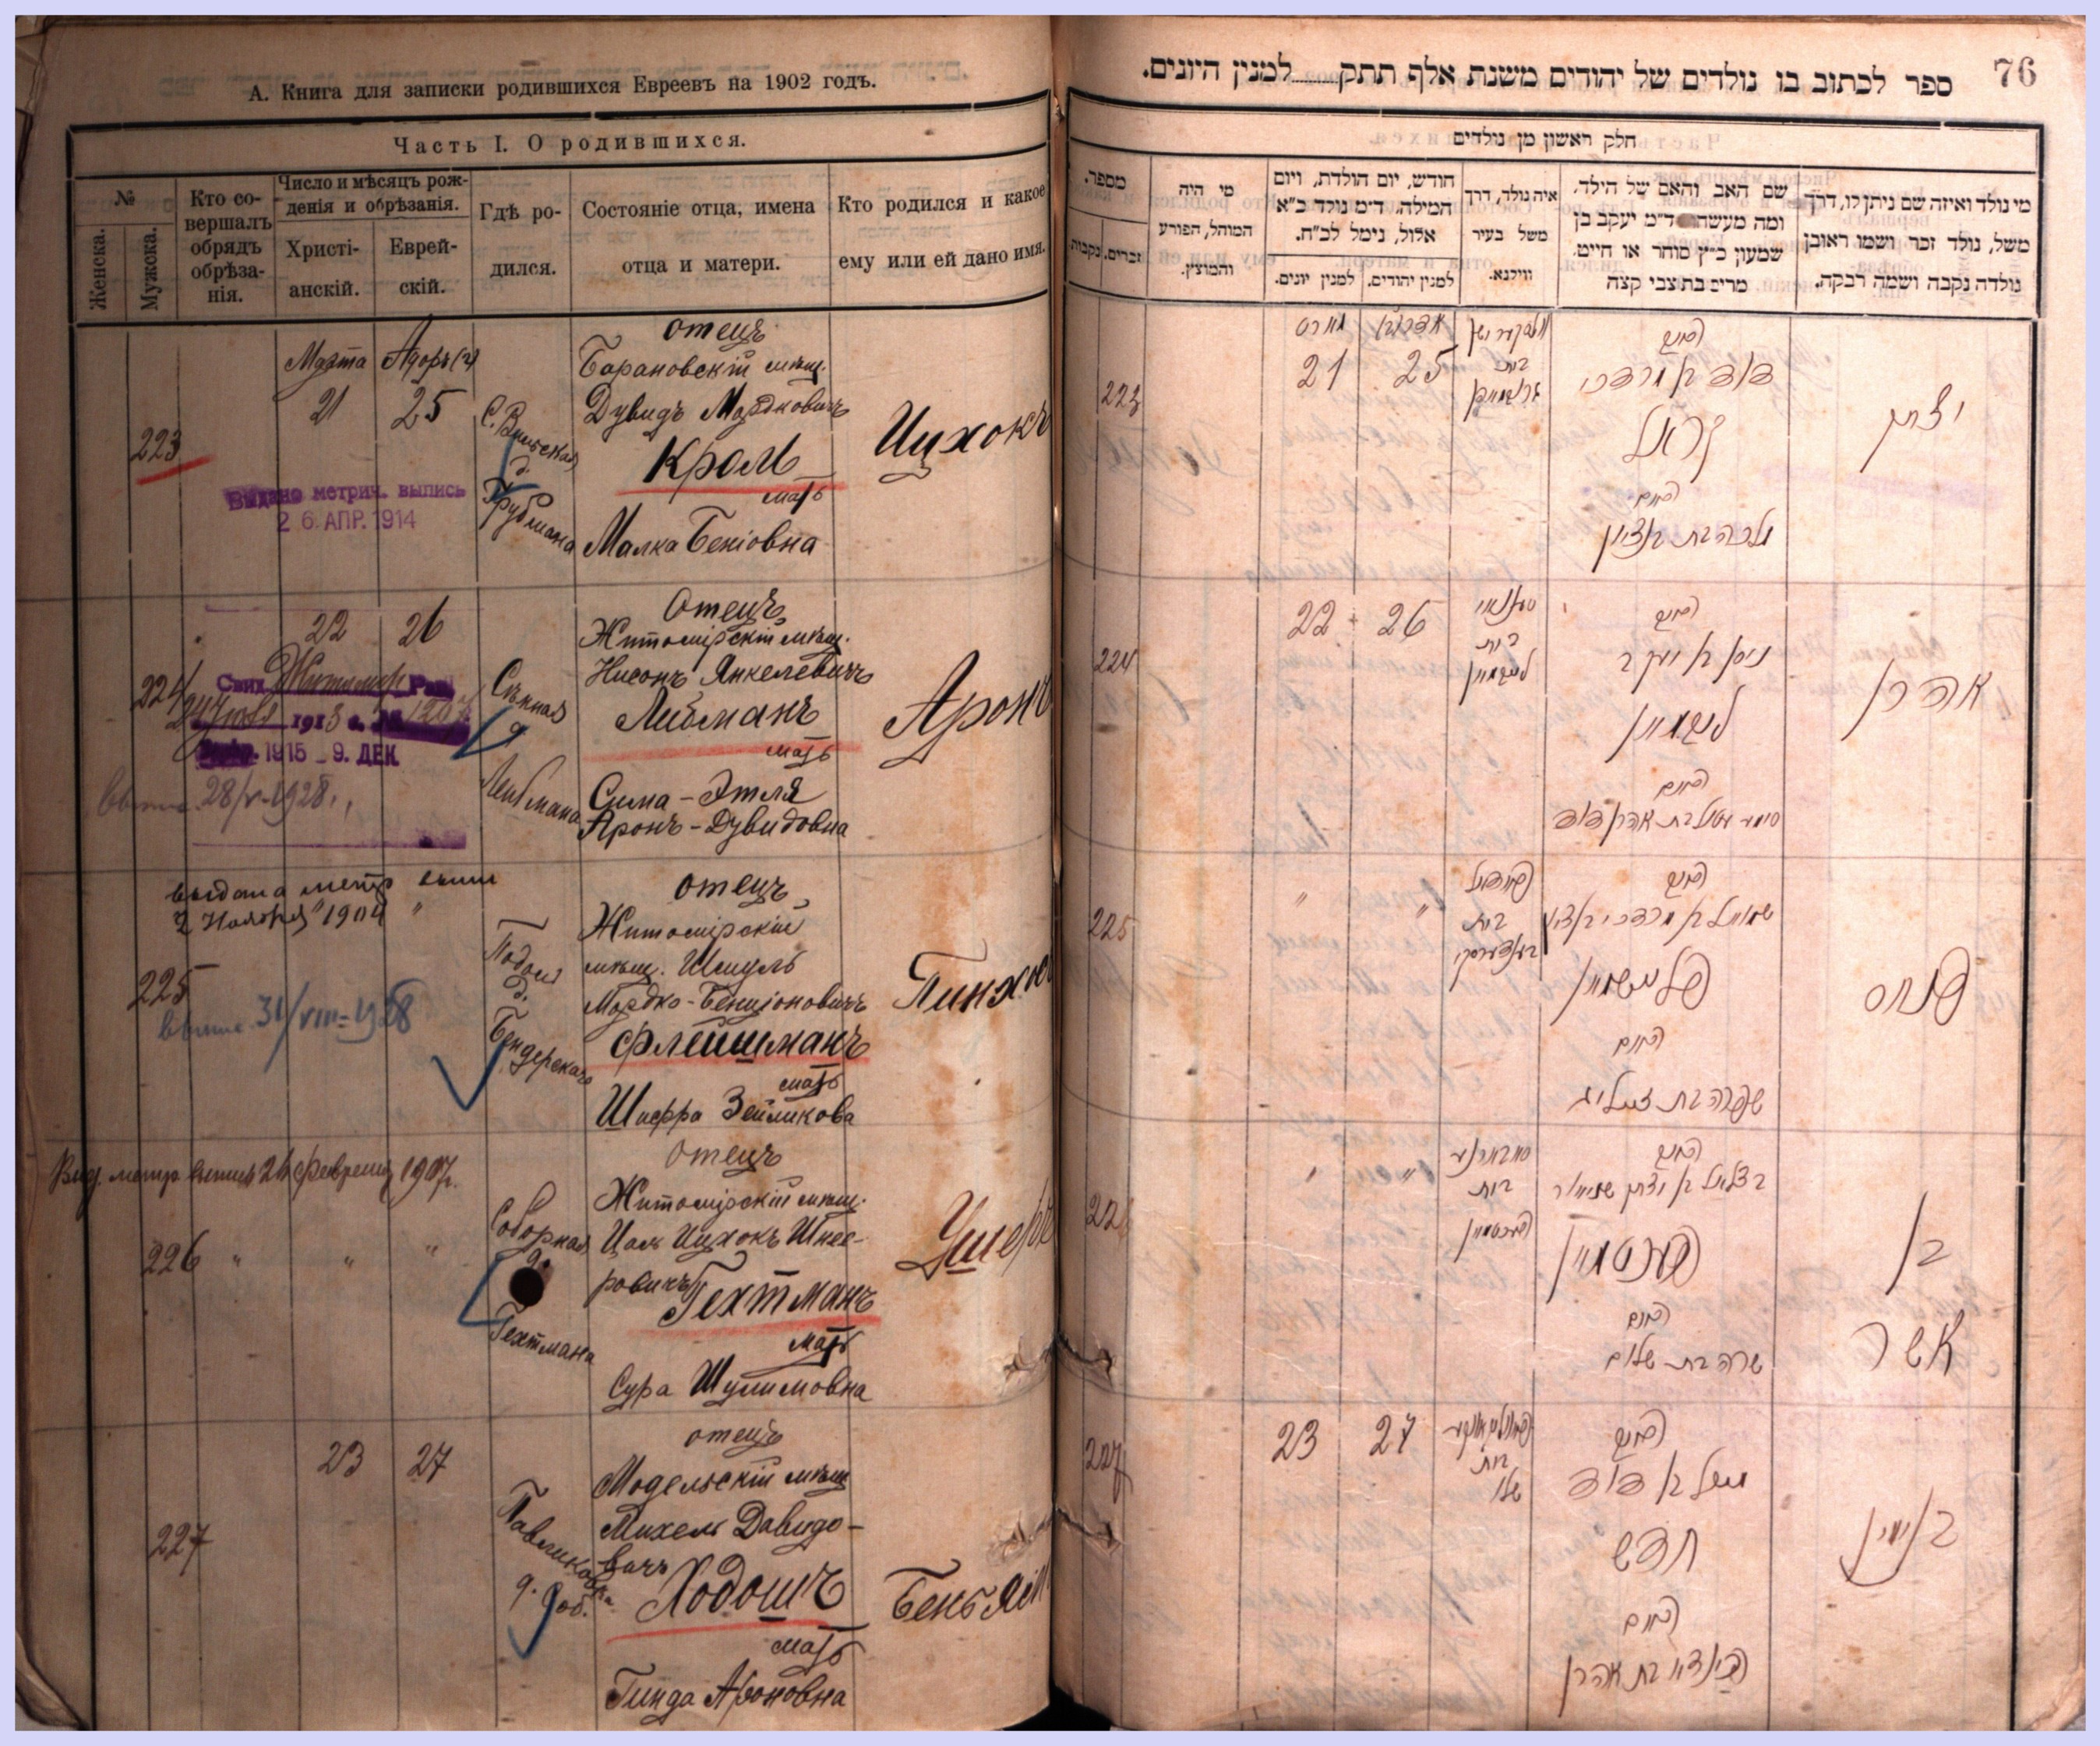 А. Книга для записки родившихся Евреевъ на 1902 годъ.
Часть I. О родившихся.
№
Женска.
Мужска.
Кто со-
вершалъ
обрядъ
обрѣза-
нія.
Число и мѣсяцъ рож-
денія и обрѣзанія.
Христі-
анскій.
Еврей-
скій.
Гдѣ ро-
дился.
Состояніе отца, имена
отца и матери.
Кто родился и какое
ему или ей дано имя.
223
Марта
21
Адоръ (2)
25
С. Вильская
д.
отецъ
Барановскій мѣщ.
Дувидъ Мордковичъ
Кроль
мать
Малка Беніовна
Ицхокъ
Выдано метрич. выпись
26 АПР. 1914
224
22
26
Сѣнная
д.
Либмана
Отецъ
Житомірскій мѣщ.
Нисонъ Янкелевичъ
Либманъ
мать
Сима-Этля
Аронъ-Дувидовна
Аронъ
1913
1915 9. ДЕК.
28/V-1928
выдана метр
2 Ноября 1904
225
31/VIII-1928
Подол
д.
Бендерскаго
отецъ
Житомірскій
мѣщ. Шмуль
Мордко-Бенціоновичъ
Флейшманъ
мать
Шифра Зейликова
Пинхос
Выд. метр выпись 24 февраля 1907г.
226
"
"
"
Соборная
д.
Гехтмана
отецъ
Житомірскій мѣщ.
Цаль Ицхокъ Шнее-
ровичъ
Гехтманъ
мать
Сура Шулимовна
Ушеръ
227
23
27
Павликовка
д. Соб.
отецъ
Модельскій мѣщ
Михель Давидо-
вичъ
Ходошъ
мать
Гинда Ароновна
Беньямин
76
ספר לכתוב בו נולדים של יהודים משנת אלף תתק......למנין היונים.
חלק ראשון מן נולדים
מספר.
זכרים.
נקבות.
מי היה
המוהל, הפורע
והמוצץ.
חודש, יום הולדת, ויום
המילה. ד״מ נולד כ״א
אלול, נימל לכ״ח.
למנין יהודים.
למנין יונים.
איה נולד, דרך
משל בעיר
ווילנא.
שם האב והאם של הילד,
ומה מעשהו ד״מ יעקב בן
שמעון כ״ץ סוחר או חיים.
מרים בת צבי קצה
מי נולד ואיזה שם ניתן לו, דרך
משל, נולד זכר ושמו ראובן
נולדה נקבה ושמה רבקה.
223
מארט
21
25
בית
האב
דוד בן מרדכי
קראל
האם
מלכה בת בן ציון
יצחק
224
22
26
בית
ליבמאן
האב
ניסן בן יעקב
ליבמאן
האם
סימע עטיל בת אהרן דוד
אהרן
225
"
"
בית
בענדערסקי
האב
שמואל בן מרדכי בן ציון
פליישמאן
האם
שפרה בת זעליג
פנחס
226
"
"
בית
העכטמאן
האב
בצלאל בן יצחק שניאור
העכטמאן
האם
שרה בת שלום
בן
אשר
227
23
27
בית
שלו
האב
מיכל בן דוד
חדש
האם
הינדא בת אהרן
בנימין